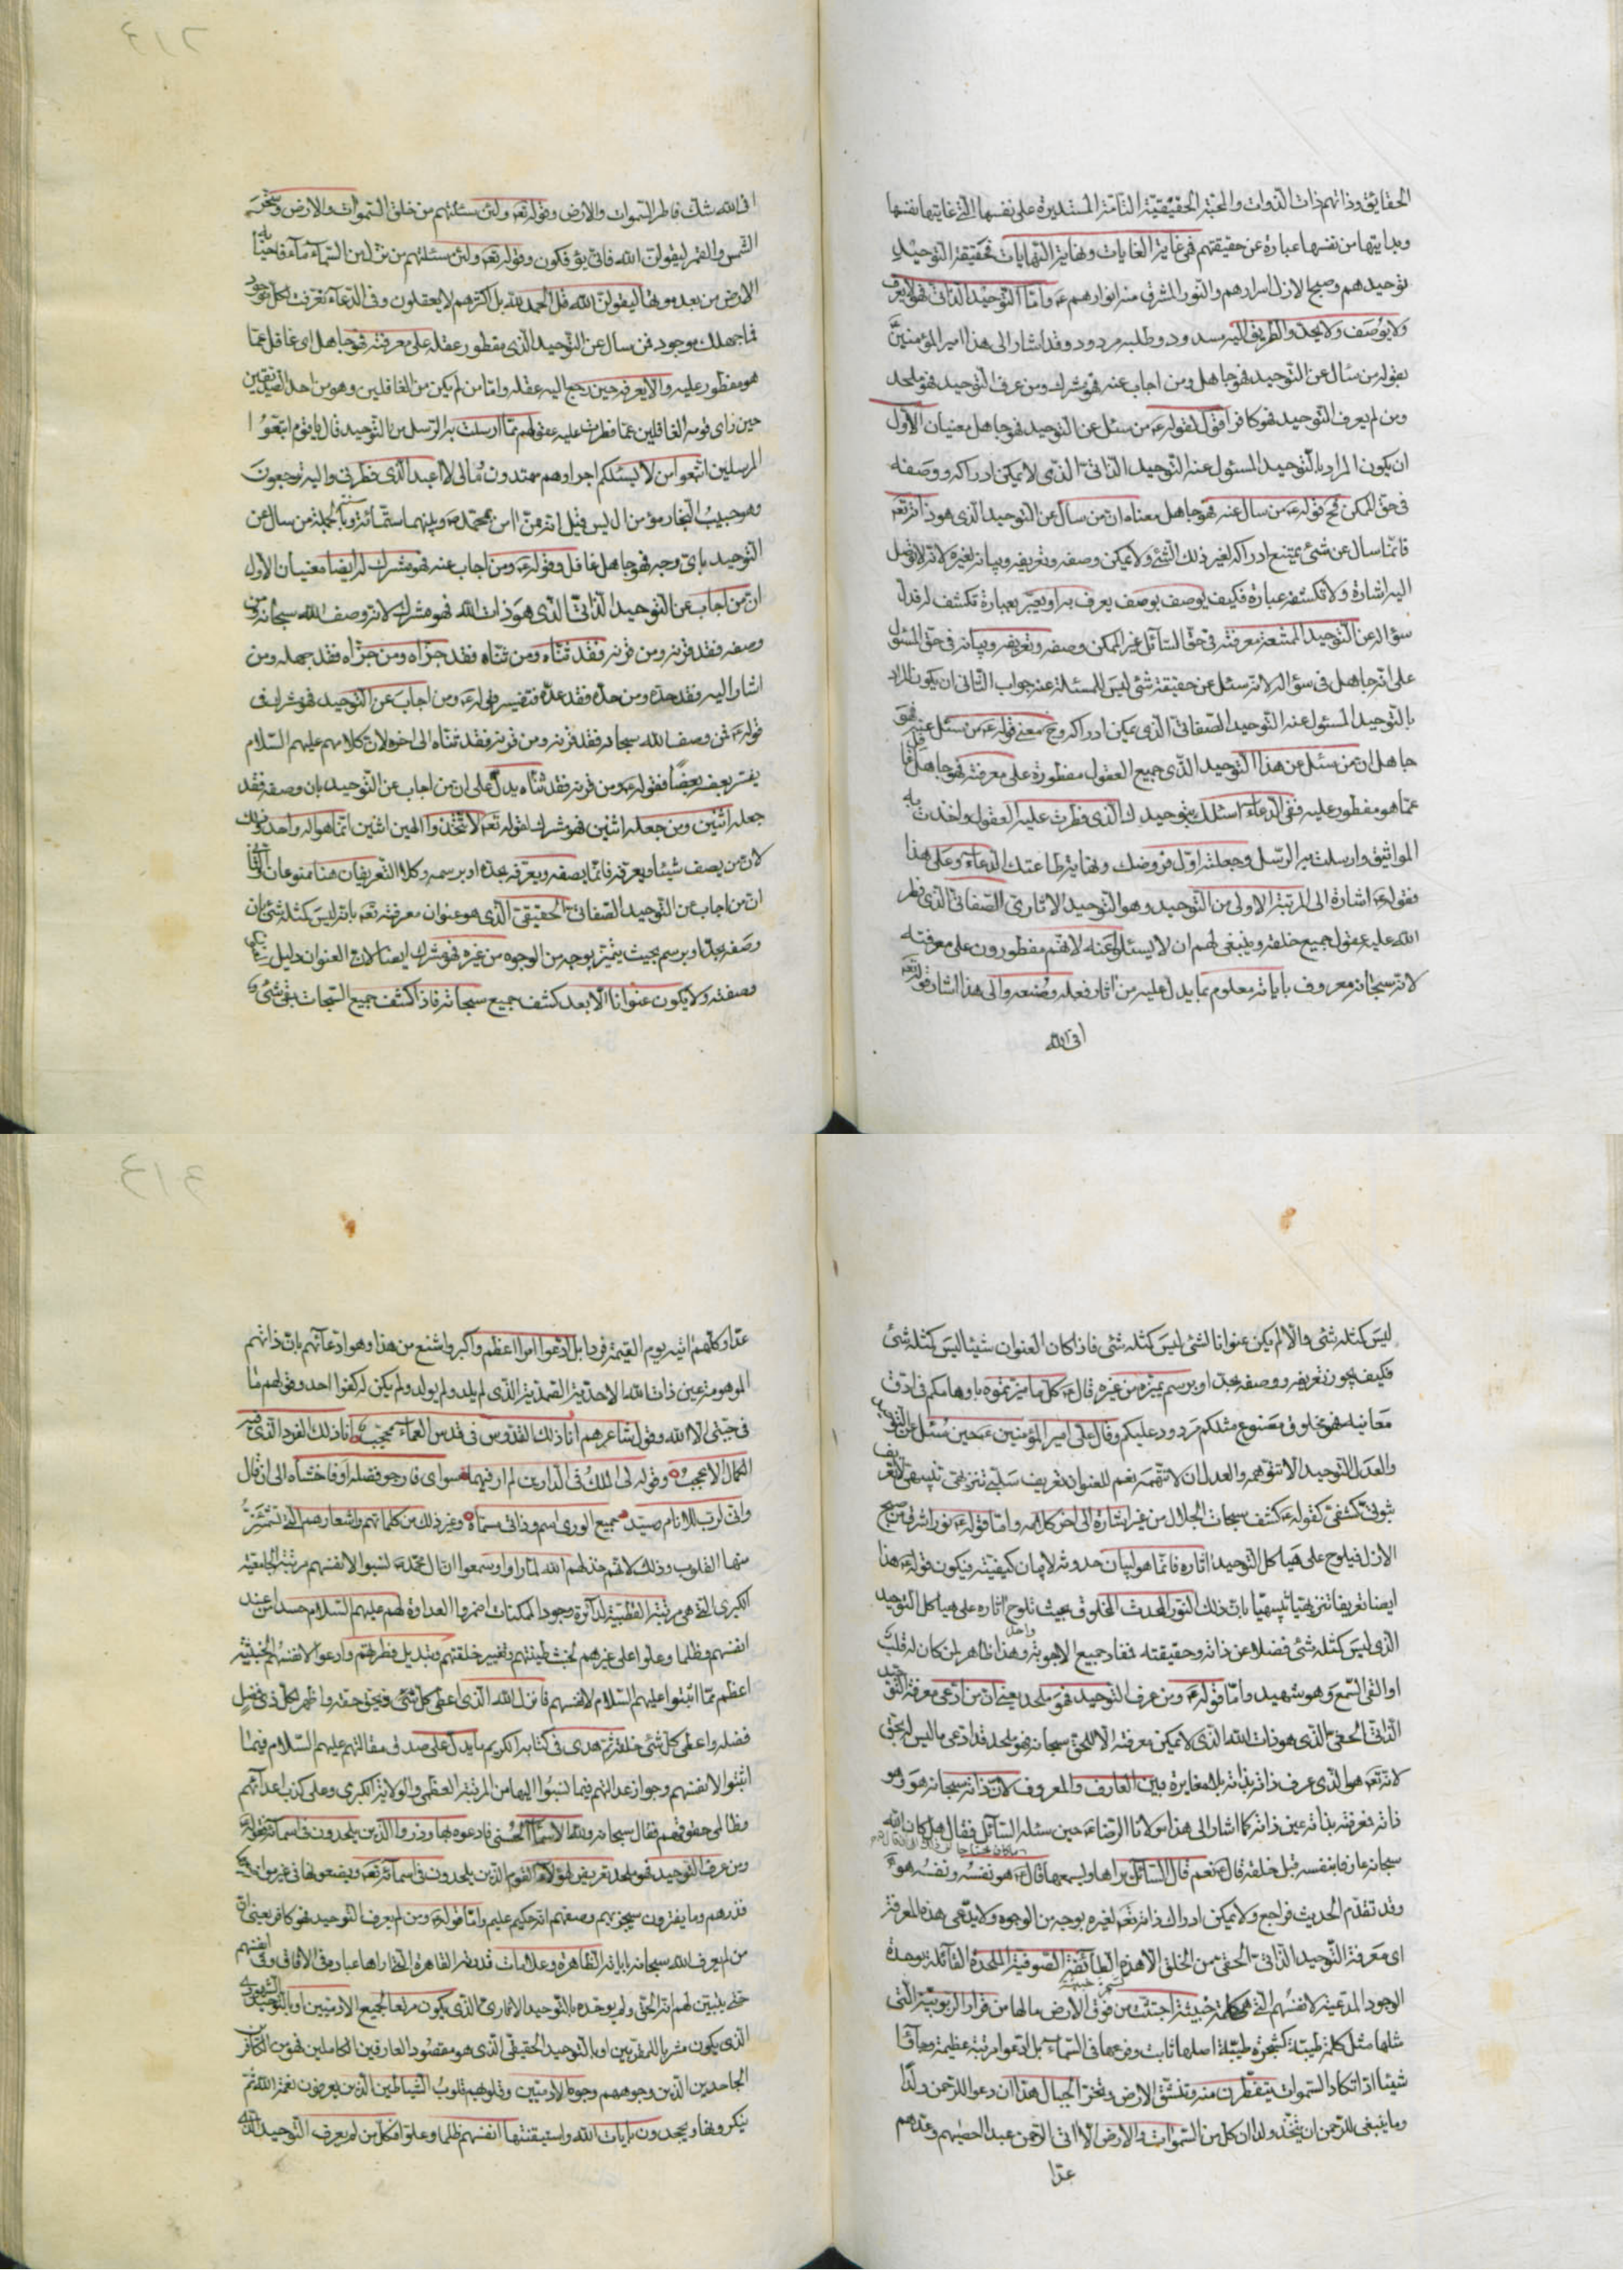 الحقايق وذاتهم ذات الذوات والمحبة الحقيقية التامة المستديرة على نفسها التى غايتها نفسها
وبدايتها من نفسها عبارة عن حقيقتهم فى غاية الغايات ونهاية النهايات فحقيقة التوحيد
توحيدهم وصبح الازل اسرارهم والنور المشرق منه انوارهم ع وامّا التوحيد الذاتى فهو لا يعرف
ولا يوصف ولا يحدّ والطريق اليه مسدود وطلبه مردود وقد اشار الى هذا امير المؤمنين
بقوله من سئال عن التوحيد فهو جاهل ومن اجاب عنه فهو مشرك ومن عرف التوحيد فهو ملحد
ومن لم يعرف التوحيد فهو كافر اقول لقوله ع من سئل عن التوحيد فهو جاهل معنيان الأول
ان يكون المراد بالتوحيد المسئول عنه التوحيد الذاتى الذى لا يمكن ادراكه ووصفه
فى حق الممكن فح قوله ع من سال عنه فهو جاهل معناه ان من سال عن التوحيد الذى هو ذاته تعم
فانما سال عن شئ يمتنع ادراكه لغير ذلك الشئ ولا يمكن وصفه وتعريفه وبيانه لغيره لانه لا تصل
اليه اشارة ولا تكشفه عبارة فكيف يوصف بوصف يعرف به او يعبر بعبارة تكشف له فدل
سؤاله عن التوحيد الممتنعة معرفته فى حق السائل غير الممكن وصفه وتعريفه وبيانه فى حق المسئول
على انه جاهل فى سؤاله لانه سئل عن حقيقة شئ ليس للمسئلة عنه جواب الثانى ان يكون المراد
بالتوحيد المسئول عنه التوحيد الصفاتى الذى يمكن ادراكه وح معنى قوله ع من سئل عنه فهو
جاهل ان من سئل عن هذا التوحيد الذى جميع العقول مفطورة على معرفته فهو جاهل غافل
عما هو مفطور عليه ففى الدعاء اسئلك بتوحيدك الذى فطرت عليه العقول واخذت به
المواثيق وارسلت به الرسل وجعلته اول فروضك ونهاية طاعتك الدعاء وعلى هذا
فقوله ع اشارة الى المرتبة الاولى من التوحيد وهو التوحيد الاثارى الصفاتى الذى فطر
الله عليه عقول جميع خلقه وينبغى لهم ان لا يسئلوا عنه لانهم مفطورون على معرفته
لانه سبحانه معروف بآياته معلوم بما يدل عليه من اثار فعله وصنعه والى هذا اشار قوله تعم
افى الله
افى الله شك فاطر السموات والارض وقوله تعم ولئن سئلتهم من خلق السموات والارض وسخر
الشمس والقمر ليقولن الله فانى يؤفكون وقوله تعم ولئن سئلتهم من نزل من السماء ماء فاحيا به
الارض من بعد موتها ليقولن الله قل الحمد لله بل اكثرهم لا يعقلون وفى الدعاء تعرفت لكل موجود
فما جهلك موجود فمن سال عن التوحيد الذى مفطور عقله على معرفته فهو جاهل اى غافل عما
هو مفطور عليه والا يعرفه حين رجع اليه عقله واما من لم يكن من الغافلين وهو من احد الصديقين
حين راى قومه الغافلين عما فطرت عليه عقولهم مما ارسلت به الرسل من التوحيد قال يا قوم اتبعوا
المرسلين اتبعوا من لا يسئلكم اجرا وهم مهتدون ومالى لا اعبد الذى فطرنى واليه ترجعون
وهو حبيب النجار مؤمن ال يس قيل انه ممن امن بمحمد ص وبينهما ستمائة سنة وبالجملة من سال عن
التوحيد باى وجه فهو جاهل غافل وقوله ع ومن اجاب عنه فهو مشرك له ايضا معنيان الأول
ان من اجاب عن التوحيد الذاتى الذى هو ذات الله فهو مشرك لانه وصف الله سبحانه ومن
وصفه فقد قرنه ومن قرنه فقد ثناه ومن ثناه فقد جزاه ومن جزاه فقد جهله ومن
اشار اليه فقد حده ومن حده فقد عده فتفسير قوله ع ومن اجاب عن التوحيد فهو مشرك فى
قوله ع فمن وصف الله سبحانه فقد قرنه ومن قرنه فقد ثناه الى اخره لان كلامهم عليهم السلام
يفسر بعضه بعضا فقوله ع ومن قرنه فقد ثناه يدل على ان من اجاب عن التوحيد بان وصفه فقد
جعله اثنين ومن جعله اثنين فهو مشرك لقوله تعم لا تتخذوا الهين اثنين انما هو اله واحد وذلك
لان من يصف شيئا ويعرفه فانما يصفه ويعرفه بحده او برسمه وكلا التعريفان هنا ممنوعان الثانى
ان من اجاب عن التوحيد الصفاتى الحقيقى الذى هو عنوان معرفته تعم بانه ليس كمثله شئ بان
وصفه بحد او برسم بحيث يتميز بوجه من الوجوه من غيره فهو مشرك ايضا لان العنوان دليل
وصفته ولا يكون عنوانا الا بعد كشف جميع سبحاته فاذا كشف جميع السبحات بقى شئ
ليس كمثله شئ والا لم يكن عنوانا لشئ ليس كمثله شئ فاذا كان العنوان شيئا ليس كمثله شئ
فكيف يجوز تعريفه ووصفه بحد او برسم يميزه من غيره قال ع كل ما ميزتموه باوهامكم فى ادق
معانيه فهو مخلوق مصنوع مثلكم مردود عليكم وقال على امير المؤمنين ع حين سئل عن التوحيد
والعدل التوحيد الا تتوهمه والعدل ان لا تتهمه نعم للعنوان تعريف سلبى تنزيهى
ثبوتى كشفى كقوله ع كشف سبحات الجلال من غير اشارة الى اخر كلامه واما قوله ع نور اشرق من صبح
الازل فيلوح على هياكل التوحيد اثاره فانما هو لبيان حدوثه لا بيان كيفيته فيكون قوله ع هذا
ايضا تعريفا تنزيهيا بان ذلك النور المحدث المخلوق بحيث تلوح اثاره على هياكل التوحيد
الذى ليس كمثله شئ فضلا عن ذاته وحقيقته فمفاد جميع الاجوبة واحد وهذا ظاهر لمن كان له قلب
او القى السمع وهو شهيد واما قوله ع ومن عرف التوحيد فهو ملحد يعنى ان من ادعى معرفة التوحيد
الذاتى الحقى الذى هو ذات الله الذى لا يمكن معرفته الا للحق سبحانه فهو ملحد قد ادعى ما ليس له بحق
لانه تعم هو الذى عرف ذاته بذاته بلا مغايرة وبين العارف والمعروف لان ذاته سبحانه هو وهو
ذاته فمعرفته بذاته عين ذاته كما اشار الى هذا مولانا الرضا ع حين سئله السائل فقال هل كان الله
سبحانه عارفا بنفسه قبل خلقه قال ع نعم قال السائل يراها ويسمعها قال ع هو نفسه ونفسه هو
وقد تقدم الحديث فراجع ولا يمكن ادراك ذاته تعم لغيره بوجه من الوجوه ولا يدعى هذه المعرفة
اى معرفة التوحيد الذاتى الحقى من الخلق الا هذه الطائفة الصوفية الملحدة القائلة بوحدة
الوجود المدعية لانفسهم التى هى كلمة خبيثة كشجرة خبيثة اجتثت من فوق الارض مالها من قرار الربوبية التى
مثلها مثل كلمة طيبة كشجرة طيبة اصلها ثابت وفرعها فى السماء بل ادعوا مرتبة عظيمة وجاؤا
شيئا ادا تكاد السموات يتفطرن منه وتنشق الارض وتخر الجبال هدا ان دعوا للرحمن ولدا
وما ينبغى للرحمن ان يتخذ ولدا ان كل من السموات والارض الا اتى الرحمن عبدا لقد احصيهم وعدهم
عدا
عدا وكلهم اتيه يوم القيمة فردا بل ادعوا امرا اعظم واكبر واشنع من هذا وهو ادعائهم بان ذاتهم
الموهومة عين ذات الله الاحدية الصمدية الذى لم يلد ولم يولد ولم يكن له كفوا احد وقولهم ما
فى جبتى الا الله وقول شاعرهم انا ذلك القدوس فى قدس العماء محجب انا ذلك الفرد الذى فيه
الكمال الاعجب وقوله لى الملك فى الدارين لم ار فيهما سواى فارجو فضله او فاخشاه الى ان قال
وانى لرب للانام وسيد جميع الورى اسم وذاتى مسماه وغير ذلك من كلماتهم واشعارهم التى تشمئز
منها القلوب وذلك لانهم خذلهم الله لما راوا وسمعوا ان ال محمد ص نسبوا لانفسهم مرتبة الجامعية
الكبرى التى هى مرتبة القطبية لدائرة وجود الممكنات اضمروا العداوة لهم عليهم السلام حسدا من عند
انفسهم وظلما وعلوا على غيرهم لخبث طينتهم وتغيير خلقتهم وتبديل فطرتهم وادعوا لانفسهم الخبيثة
اعظم مما اثبتوا عليهم السلام لانفسهم فانزل الله الذى اعطى كل شئ حقه واظهر لكل ذى فضل
فضله واعطى كل شئ خلقه ثم هدى فى كتابه الكريم ما يدل على صدق مقالتهم عليهم السلام فيما
اثبتوا لانفسهم وجواز عدالتهم فيما نسبوا اليها من المرتبة العظمى والولاية الكبرى وعلى كذب اعدائهم
وظالمى حقوقهم فقال سبحانه ولله الاسماء الحسنى فادعوه بها وذروا الذين يلحدون فى اسمائه
ومن عرف التوحيد فهو ملحد تعريض لهؤلاء القوم الذين يلحدون فى اسمائه تعم ويضعونها فى غير مواضعها
فذرهم وما يفترون سيجزيهم وصفهم انه حكيم عليم واما قوله ع ومن لم يعرف التوحيد فهو كافر يعنى ان
من لم يعرف الله سبحانه باياته الظاهرة وعلامات قدرته القاهرة التى اراها عباده فى الافاق وفى انفسهم
حتى يتبين لهم انه الحق ولم يوحده بالتوحيد الاثارى الذى يكون مرتعا لجميع الادميين او بالتوحيد الشهودى
الذى يكون مشربا للمقربين او بالتوحيد الحقيقى الذى هو مقصود العارفين الكاملين فهو من الكافرين
الجاحدين الذين وجوههم وجوه الادميين وقلوبهم قلوب الشياطين الذين يعرفون نعمة الله ثم
ينكرونها ويجحدون بايات الله واستيقنتها انفسهم ظلما وعلوا فكل من لم يعرف التوحيد